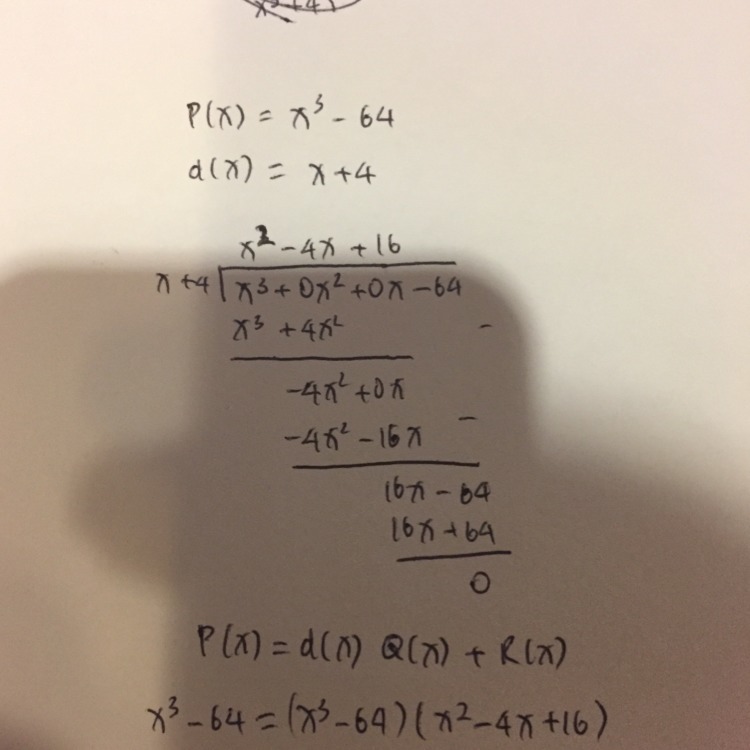 P(x) = x³ - 64
d(x) = x + 4
x² - 4x + 16
x + 4 | x³ + 0x² + 0x - 64
x³ + 4x² -
-4x² + 0x
-4x² - 16x -
16x - 64
16x + 64
0
P(x) = d(x) Q(x) + R(x)
x³ - 64 = (x³ - 64)(x² - 4x + 16)